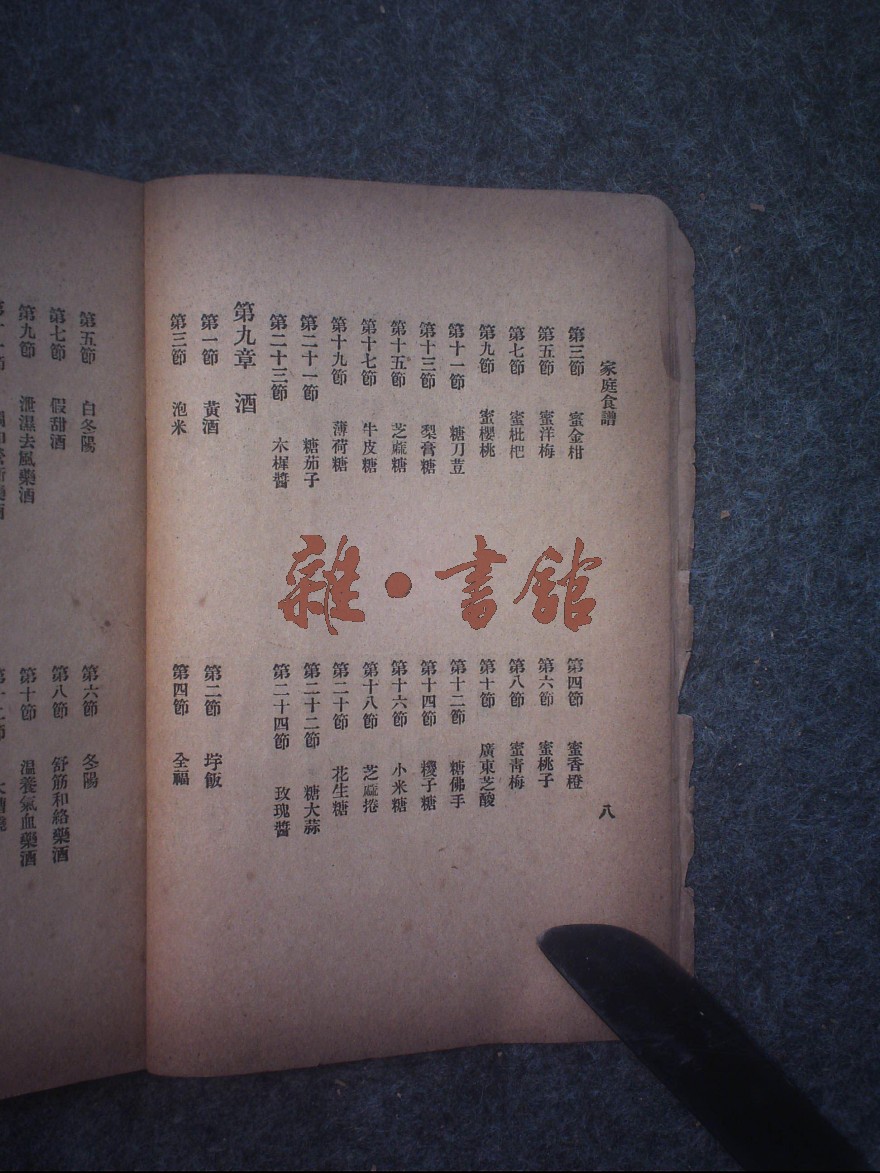 家庭食譜
八
第三節 蜜金柑
第四節 蜜香橙
第五節 蜜洋梅
第六節 蜜桃子
第七節 蜜枇杷
第八節 蜜青梅
第九節 蜜櫻桃
第十節 廣東芝酸
第十一節 糖刀荳
第十二節 糖佛手
第十三節 梨膏糖
第十四節 糉子糖
第十五節 芝蔴糖
第十六節 小米糖
第十七節 牛皮糖
第十八節 芝蔴捲
第十九節 薄荷糖
第二十節 花生糖
第二十一節 糖茄子
第二十二節 糖大蒜
第二十三節 木樨醬
第二十四節 玫瑰醬
第九章 酒
第一節 黃酒
第二節 垶飯
第三節 泡米
第四節 全福
第五節 白冬陽
第六節 冬陽
第七節 假甜酒
第八節 舒筋和絡藥酒
第九節 泄濕去風藥酒
第十節 溫養氣血藥酒
雜·書館